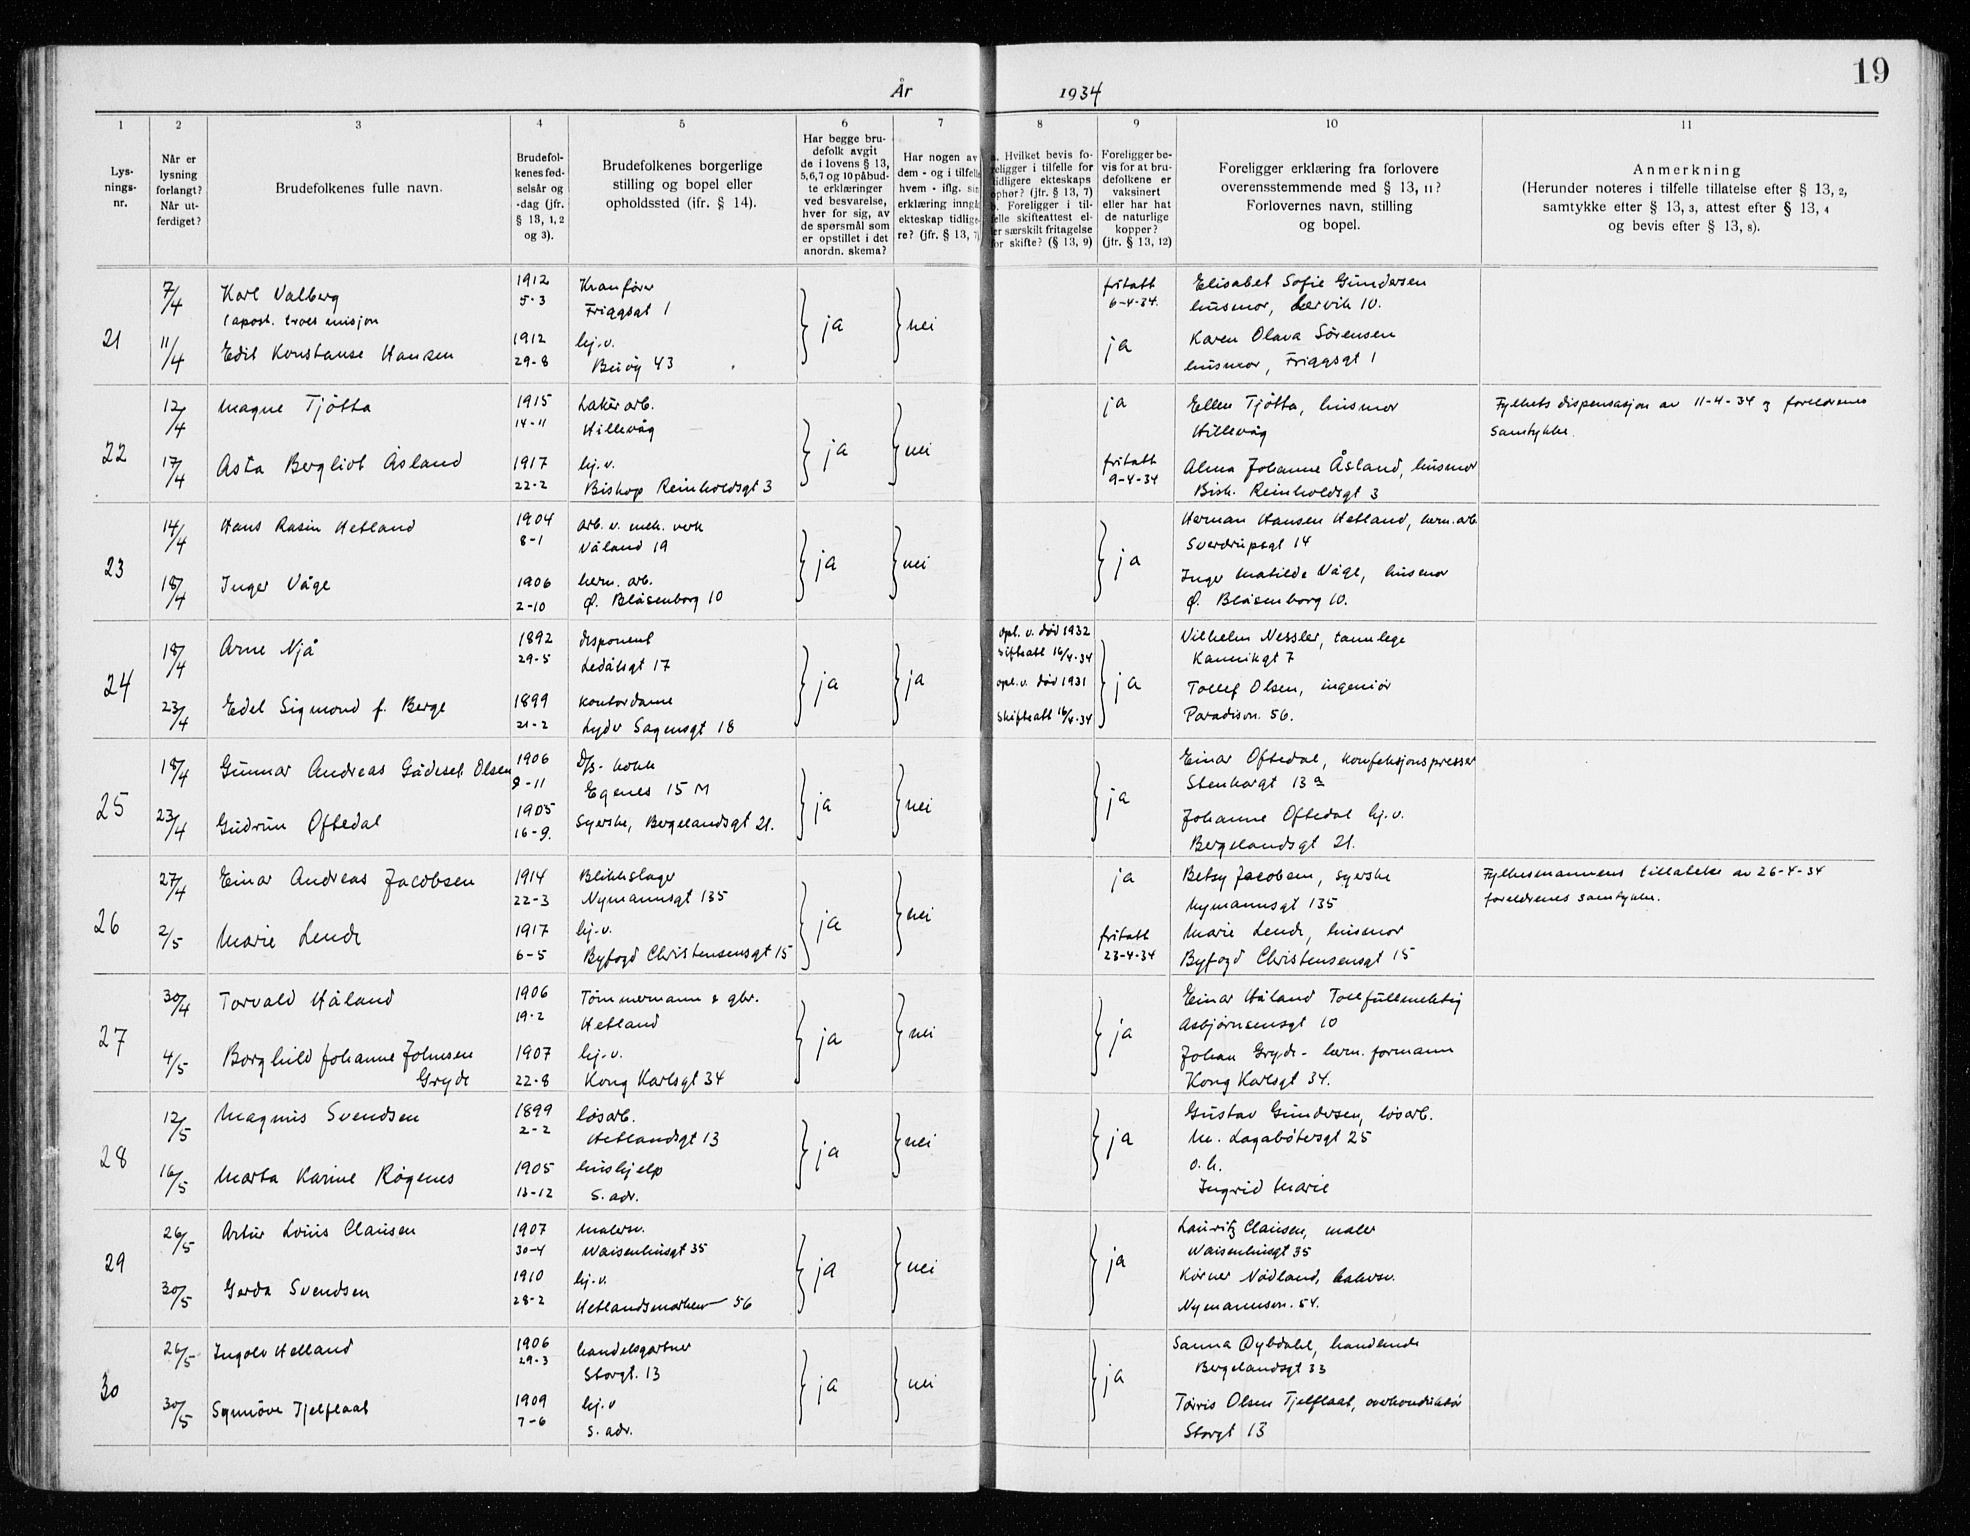 19
År 1934
1 2 3 4 5 6 7 8 9 10 11
Lys-
nings-
nr.
Når er
lysning
forlangt?
Når ut-
ferdiget?
Brudefolkenes fulle navn.
Brudefol-
kenes fød-
selsår og
-dag (jfr.
§ 13, 1, 2
og 3).
Brudefolkenes borgerlige
stilling og bopel eller
opholdssted (ifr. § 14).
Har begge bru-
defolk avgit
de i lovens § 13,
5, 6, 7 og 10 påbud-
te erklæringer
ved besvarelse,
hver for sig, av
de spørsmål som
er opstillet i det
anordn. skema?
Har nogen av
dem - og i tilfelle
hvem - iflg. sin
erklæring inngå
ekteskap tidlige-
re? (jfr. § 13, 7)
a. Hvilket bevis fo-
religger i tilfelle for
tidligere ekteskaps
ophør? (jfr. § 13, 7)
b. Foreligger i til-
felle skifteattest el-
ler særskilt fritagelse
for skifte? (§ 13, 9)
Foreligger be-
vis for at bru-
defolkene er
vaksinert
eller har hat
de naturlige
kopper?
(jfr. § 13, 12)
Foreligger erklæring fra forlovere
overensstemmende med § 13, 11?
Forlovernes navn, stilling
og bopel.
Anmerkning
(Herunder noteres i tilfelle tillatelse efter § 13, 2,
samtykke efter § 13, 3, attest efter § 13, 4
og bevis efter § 13, 8).
21
7/4 Karl Valberg 1912 Kranfører ja nei fritatt Elisabet Sofie Gundersen
(apost. troes misjon 5-3 Friggsgt 1 6-4-34. husmor, Lervik 10.
11/4 Edit Konstanse Hansen 1912 hj.v. ja Karen Olava Sørensen
29-8 Buøy 43 husmor, Friggsgt 1
22
12/4 Magne Tjøtta 1915 Lakér arb. ja nei ja Ellen Tjøtta, husmor Fylkets dispensasjon av 11-4-34 og foreldrenes
14-11 Hillevåg Hillevåg Samtykke.
17/4 Asta Bergliot Åsland 1917 hj.v. fritatt Alma Johanne Åsland, husmor
22-2 Biskop Reinholdsgt 3 9-4-34 Bisk. Reinholdsgt 3
23
14/4 Hans Rasin Hetland 1904 arb. v. mek. verk ja nei ja Herman Hansen Hetland, herm. arb.
8-1 Våland 19 Sverdrupsgt 14
18/4 Inger Våge 1906 herm. arb. Inger Matilde Våge, husmor
2-10 Ø. Blåsenborg 10 Ø. Blåsenborg 10.
24
18/4 Arne Njå 1892 disponent ja ja opl. v. død 1932 ja Vilhelm Nessler, tannlege
29-5 Ledålsgt 17 Skifteatt 16/4-34 Kannikgt 7
23/4 Edel Sigmond f. Berge 1899 Kontordame opl. v. død 1931 Tollef Olsen, ingeniør
21-2 Lyder Sagensgt 18 Skifteatt 16/4-34 Paradisvn. 56.
25
18/4 Gunnar Andreas Gådeset Olsen 1906 D/S- kokk ja nei ja Einar Oftedal, konfeksjonspresser
8-11 Egenes 15 M Stenhargt 13 a
23/4 Gudrun Oftedal 1905 Syerske, Bergelandsgt 21. Johanne Oftedal hj.v.
16-9. Bergelandsgt 21.
26
27/4 Einar Andreas Jacobsen 1914 Blikkslager ja nei ja Betsy Jacobsen, syerske Fylkesmannens tillatelse av 26-4-34
22-3 Nymannsgt 135 Nymannsgt 135 foreldrenes samtykke.
2/5 Marie Lende 1917 hj.v. fritatt Marie Lende, husmor
6-5 Byfogd Christensensgt 15 23-4-34 Byfogd Christensensgt 15
27
30/4 Torvald Håland 1906 Tømmermann & gbr. ja nei ja Einar Håland Tollfullmektig
19-2 Hetland Asbjørnsensgt 10
4/5 Borghild Johanne Johnsen 1907 hj.v. Johan Gryde - herm. formann
Gryde 22-8 Kong Karlsgt 34 Kong Karlsgt 34.
28
12/5 Magnus Svendsen 1899 løsarb. ja nei ja Gustav Gundersen, løsarb.
2-2 Hetlandsgt 13 M. Lagabøtersgt 25
16/5 Marta Karine Røgenes 1905 hushjelp o.h.
13-12 S. adr. Ingrid Marie
29
26/5 Artur Louis Clausen 1907 Malersv. ja nei ja Lauritz Clausen, maler
30-4 Waisenhusgt 35 Waisenhusgt 35
30/5 Gerda Svendsen 1910 hj.v. Kørner Nødland, bakersv.
28-2 Hetlandsmarken 56 Nymannsvn. 54.
30
26/5 Ingolv Helland 1906 handelsgartner ja nei ja Sanna Øybdahl, handlende
29-3 Storgt. 13 Bergelandsgt 33
30/5 Synnøve Tjelflaat 1909 hj.v Torris Olsen Tjelflaat, overkonduktør
7-6 S. adr. Storgt 13